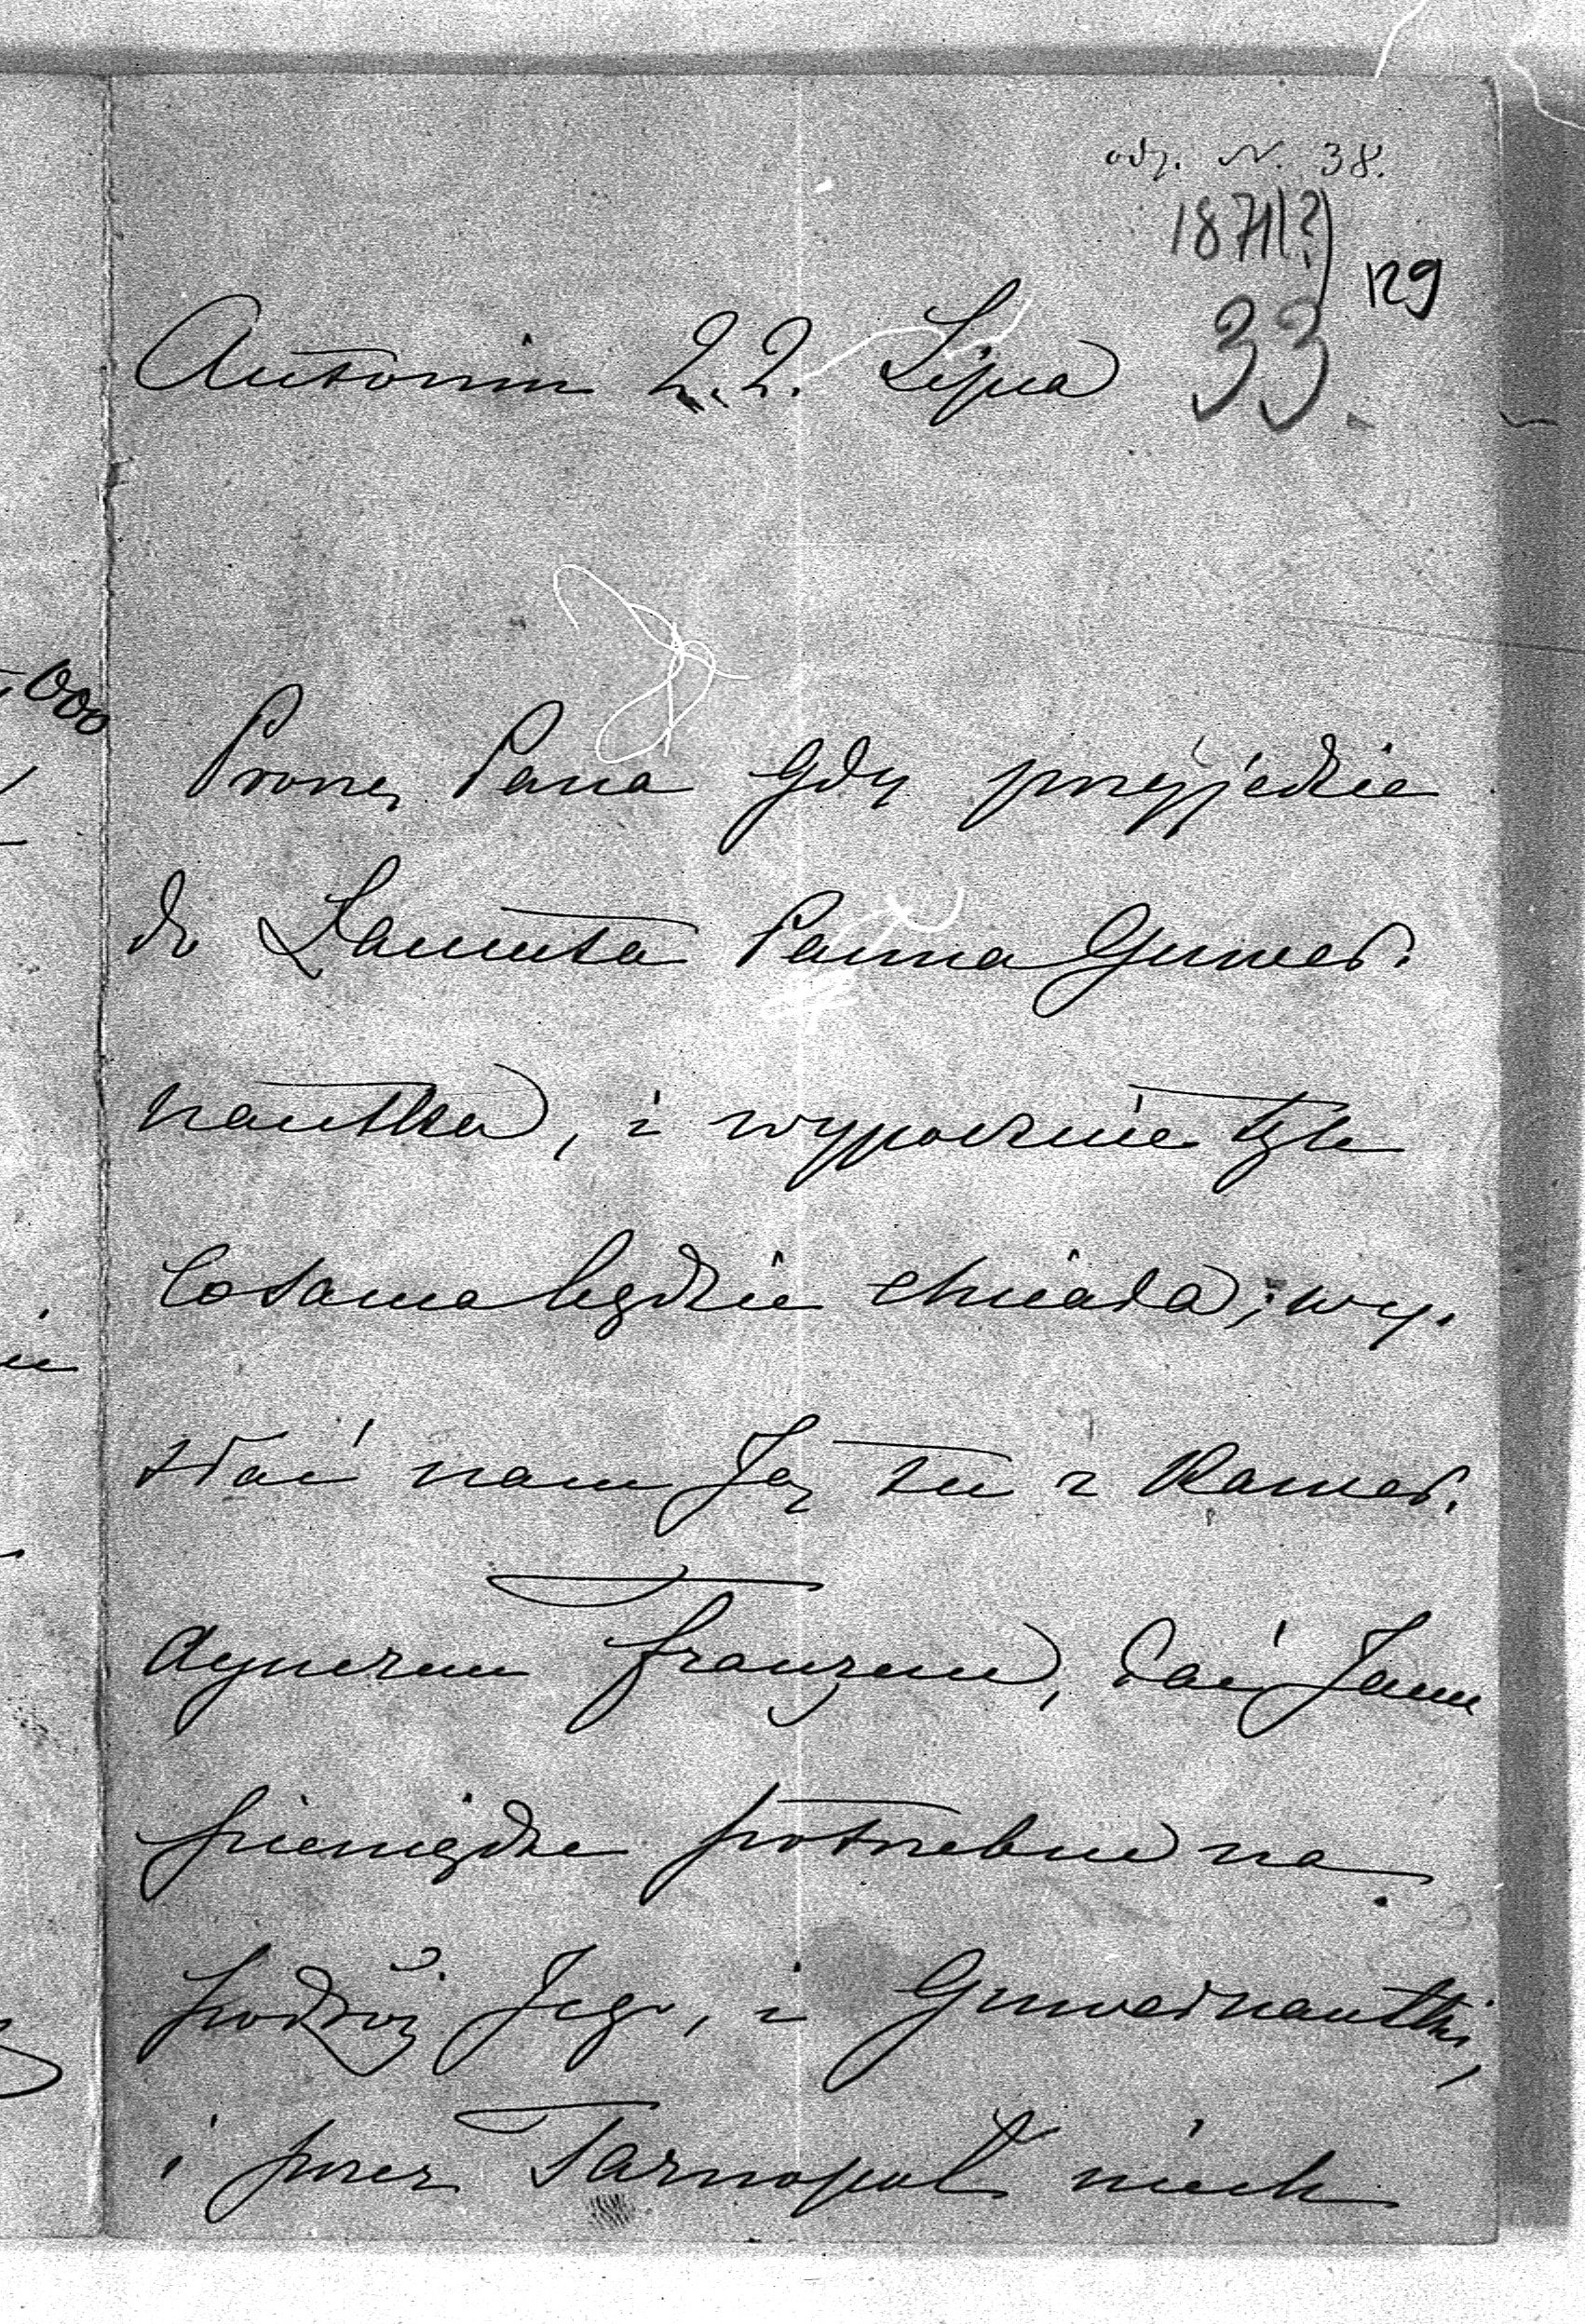 odp. N. 38.
1871(?)
129
33.
Antonin 22. Lipca
Proszę Pana gdy przyjedzie
do Łańcuta Panna Guwer.
nantka, i wypocznie tyle
co sama będzie chciała, wy.
słać nam Ją tu z Kamer.
dynerem Francuzem, dać Jemu
pieniądze potrzebne na
podróż Jego, i Guwernantki,
i przez Tarnopol niech